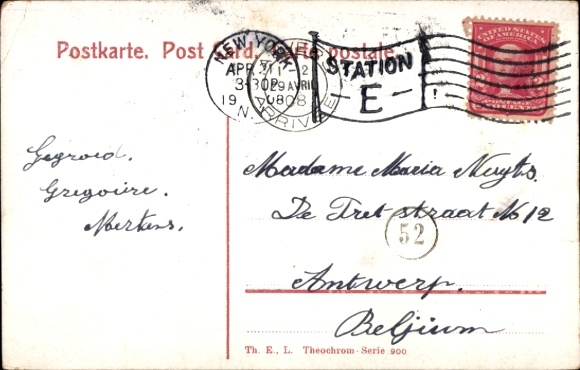 Postkarte. Post Card. Carte postale.
NEW YORK, N.Y.
APR 11
3-30P
1908
STATION
E
1-2
29 AVRIL
08
ARRIVÉE
UNITED STATES
OF AMERICA
2
2
Gegroed.
Gregoire.
Mertens.
Madame Maria Nuyts.
De Tret straat No 12
52
Antwerp.
Beljium
Th. E., L. Theochrom-Serie 900